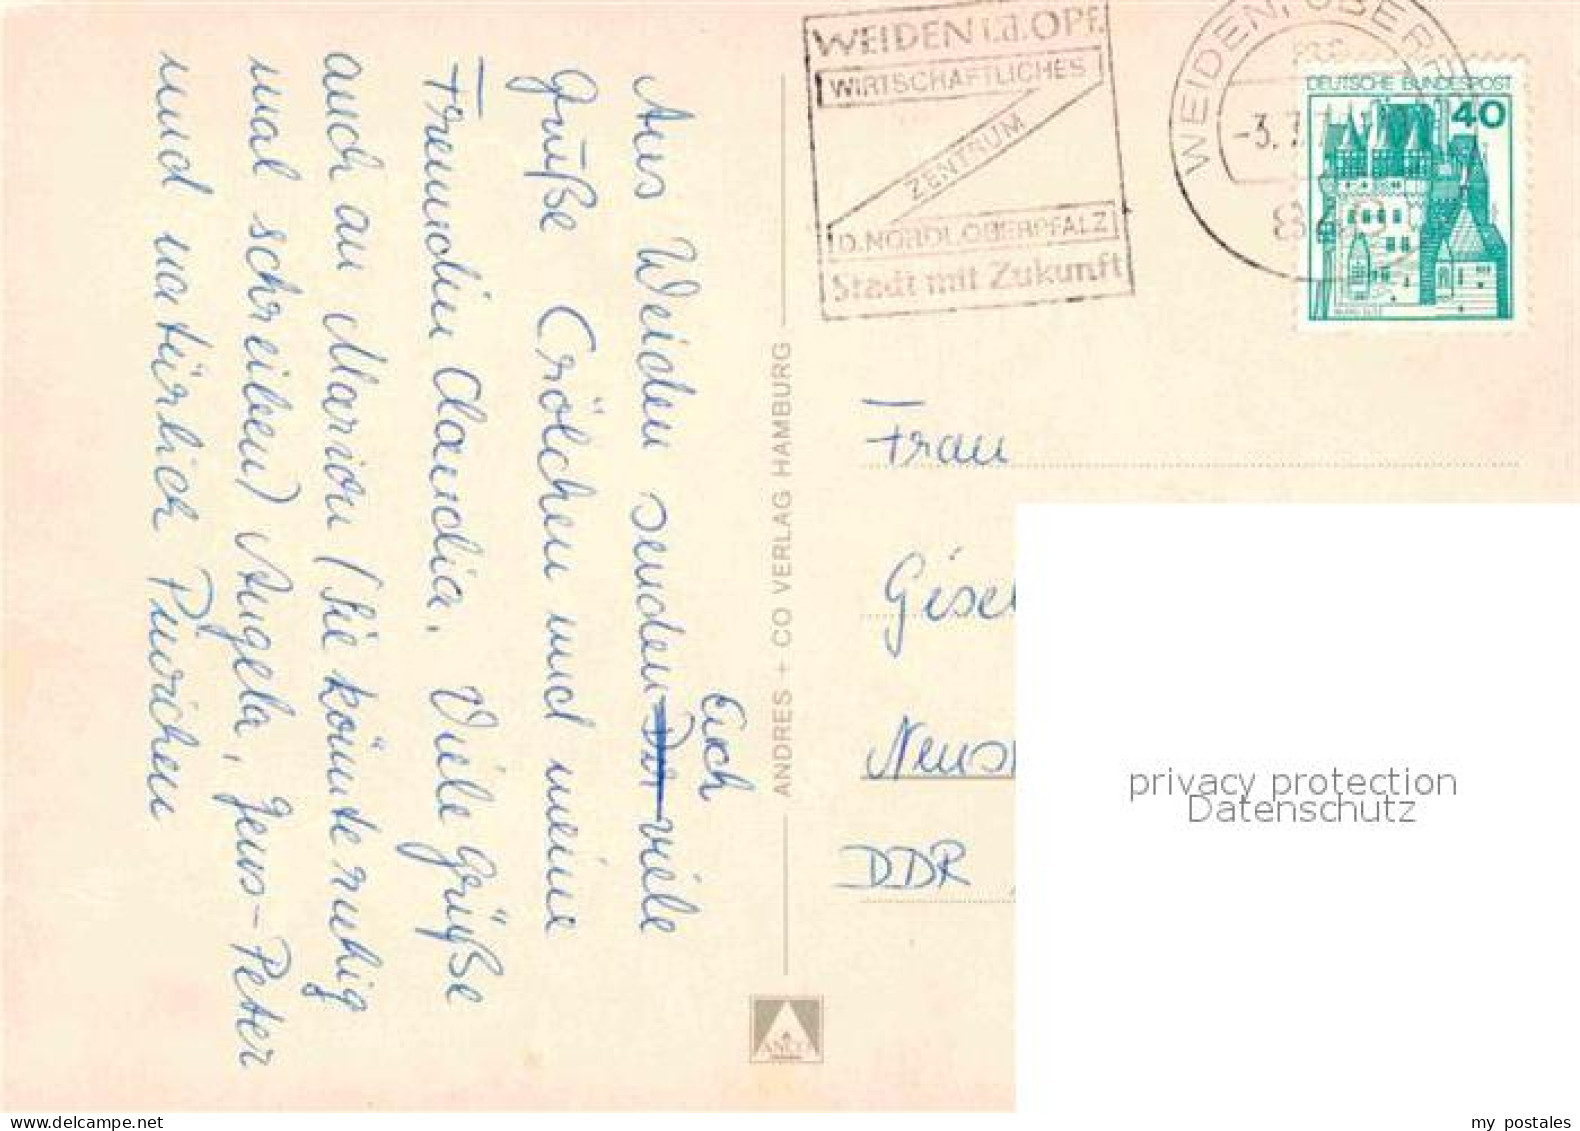 Aus Weiden senden Euch viele
Grüße Crölchen und meine
Freundin Claudia. Viele Grüße
auch an Marion (Sie könnte ruhig
mal schreiben) Angela, Jens-Peter
und natürlich
ANDRES + CO VERLAG HAMBURG
ANCO
WEIDEN i.d.OPF.
WIRTSCHAFTLICHES
ZENTRUM
D.NÖRDL.OBERPFALZ
Stadt mit Zukunft
WEIDEN, OBERPF
-3.7.7
DEUTSCHE BUNDESPOST
40
Frau
Gisel
Neus
DDR
privacy protection
Datenschutz
my postales